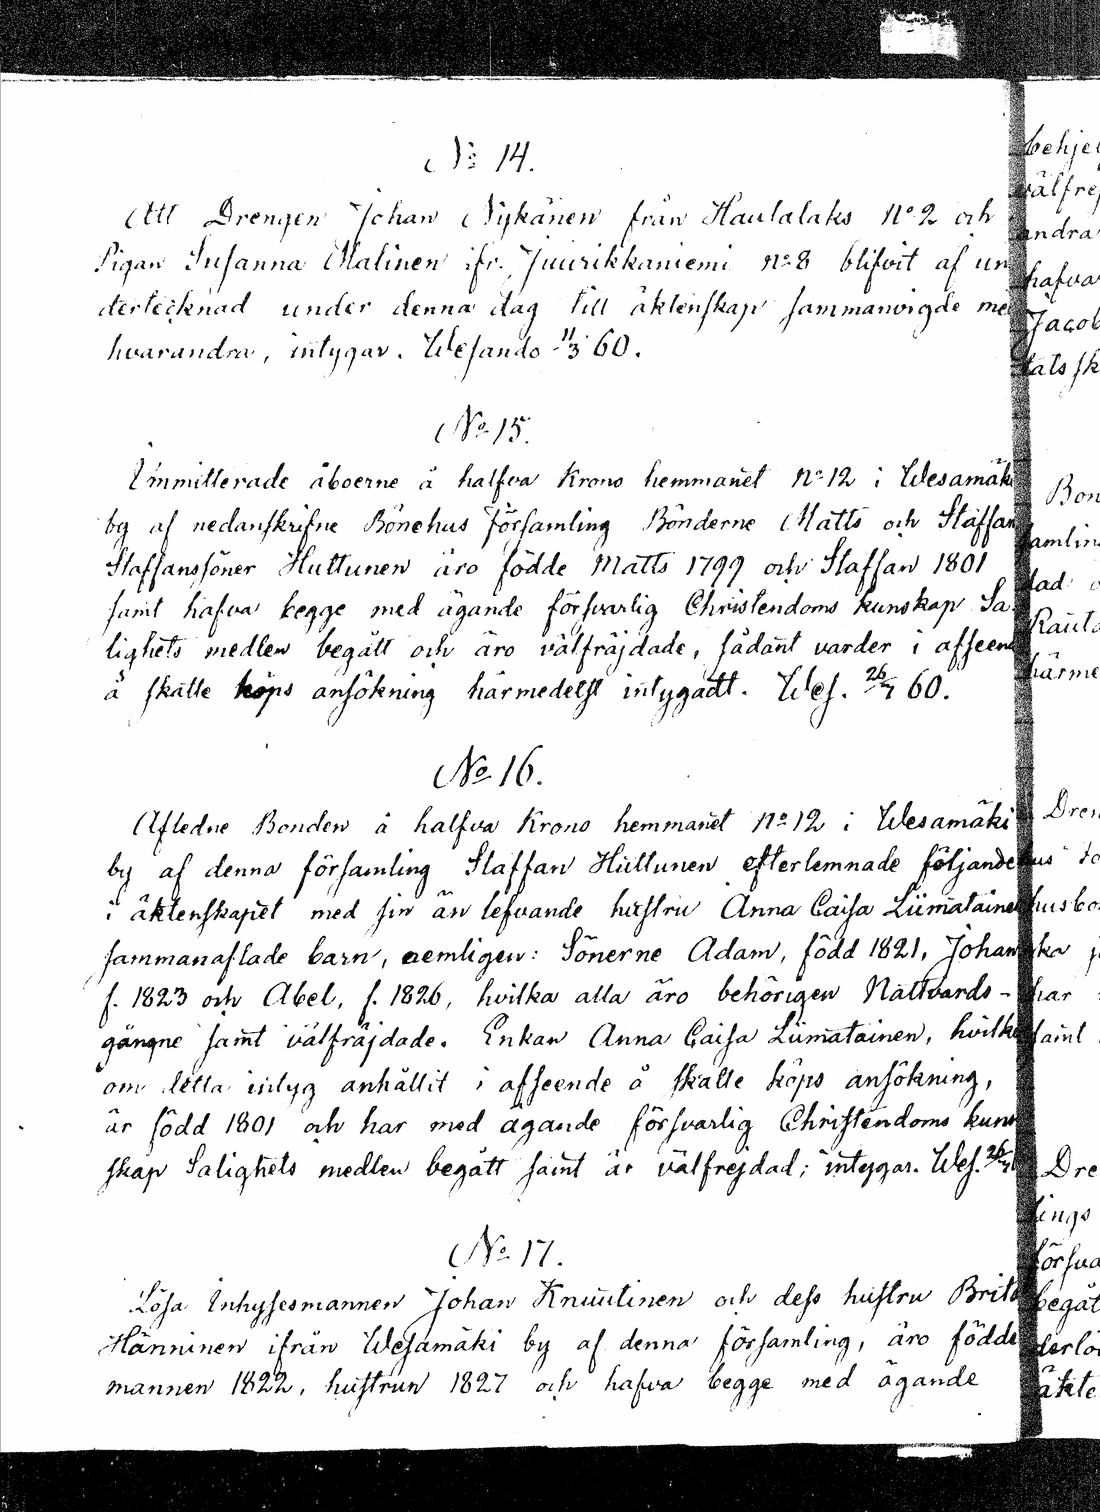 No 14.
Att Drengen Johan Nykänen från Hautalaks No 2 och
Pigan Susanna Malinen ifr. Juurikkaniemi No 8 blifvit af un
dertecknad under denna dag till äktenskap sammanvigde me
hvarandra, intygar. Wesando 11/3 60.
No 15.
Immitterade åboerne å halfva Krono hemmanet No 12 i Wesamäki
by af nedanskrifne Bönehus församling Bönderne Matts och Staffan
Staffanssöner Huttunen äro födde Matts 1799 och Staffan 1801
samt hafva begge med ägande försvarlig Christendoms kunskap Sa
lighets medlen begått och äro välfräjdade, sådant varder i afseend
å skatte köps ansökning härmedelst intygadt. Wes. 26/7 60.
No 16.
Afledne Bonden å halfva Krono hemmanet No 12 i Wesamäki
by af denna församling Staffan Huttunen efterlemnade följande
i äktenskapet med sin än lefvande hustru Anna Caisa Liimatainen
sammanaflade barn, nemligen: Sönerne Adam, född 1821, Johan
f. 1823 och Abel, f. 1826, hvilka alla äro behörigen Nattvards-
gångne samt välfräjdade. Enkan Anna Caisa Liimatainen, hvilken
om detta intyg anhållit i afseende å skatte köps ansökning,
är född 1801 och har med ägande försvarlig Christendoms kun
skap Salighets medlen begått samt är välfrejdad; intygar. Wes. 26/7
No 17.
Lösa Inhysesmannen Johan Knuutinen och dess hustru Brita
Hänninen ifrån Wesamäki by af denna församling, äro födde
mannen 1822, hustrun 1827 och hafva begge med ägande
behje
välfrej
andra
hafva
Jacob
tats sk
Bon
samlin
dad
Rauta
härme
Dren
hus
husbo
ska
har
samt
Dre
lings
försva
begåt
derlö
äkte